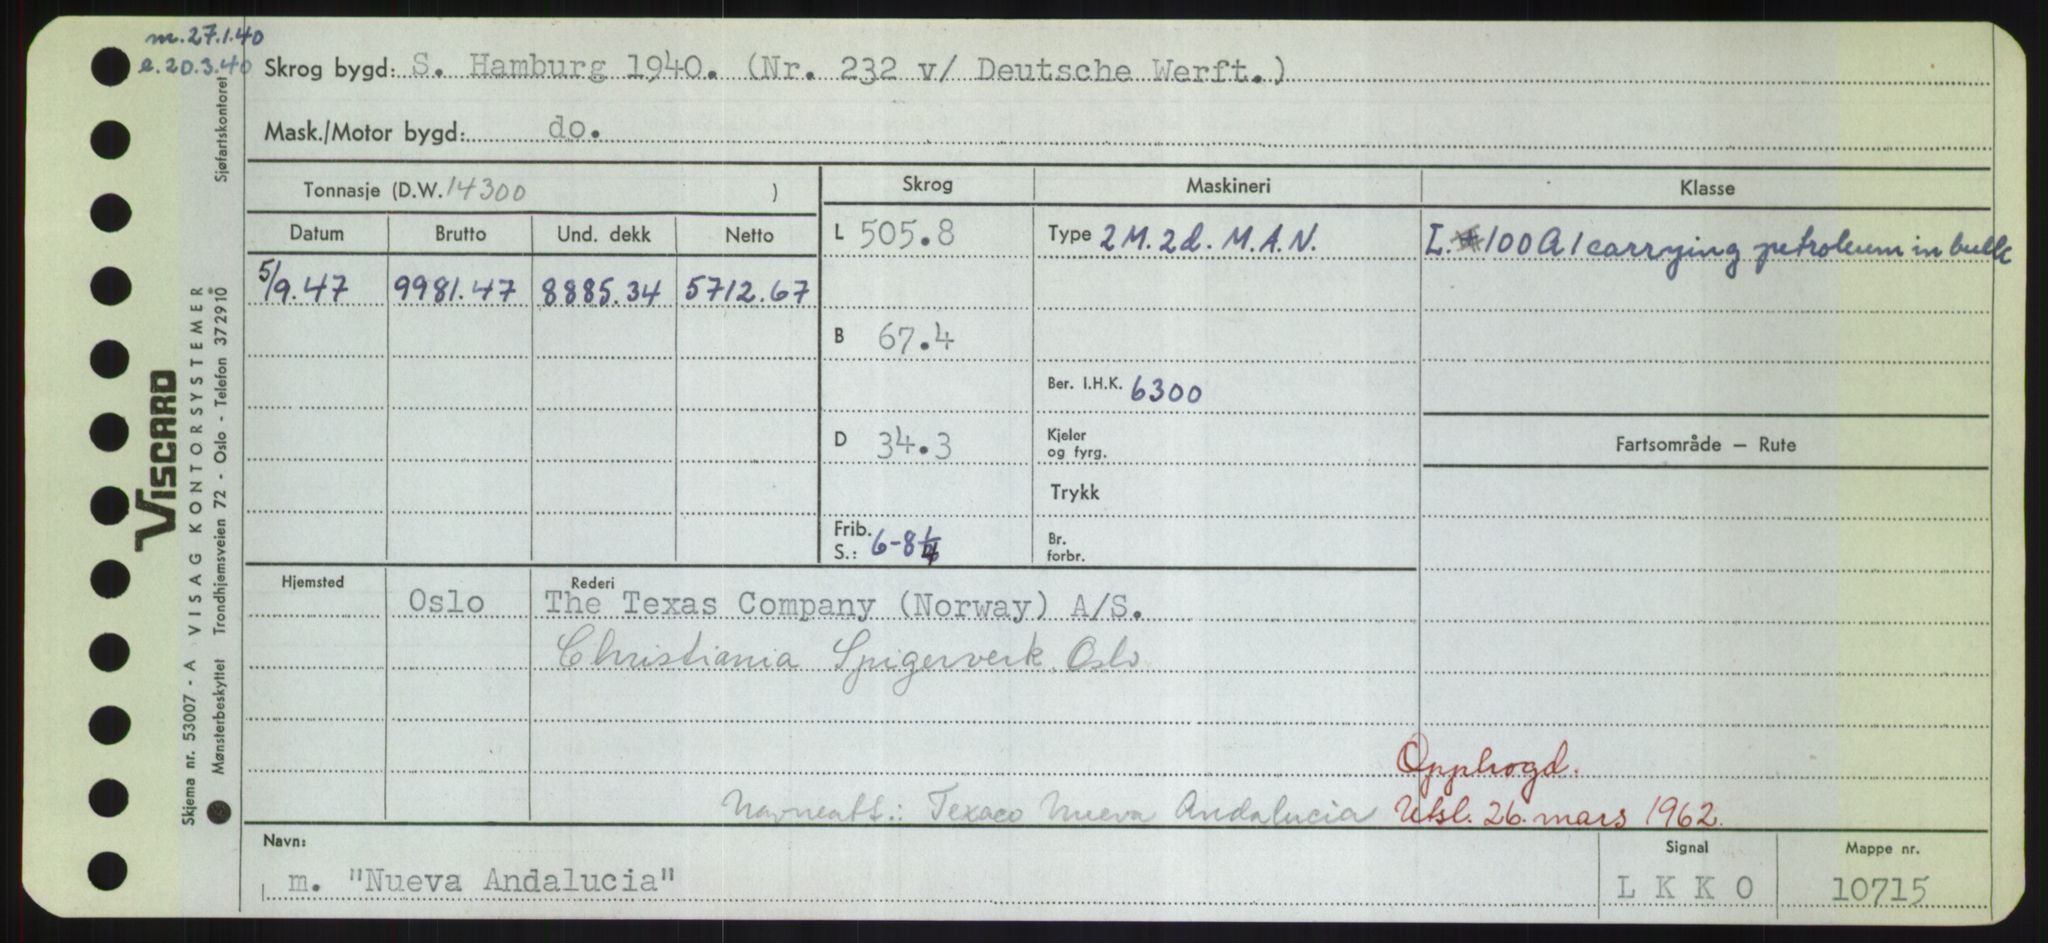 m.27.1.40
e.20.3.40
Skrog bygd: S. Hamburg 1940. (Nr. 232 v/ Deutsche Werft.)
Mask./Motor bygd: do.
Tonnasje (D.W. 14300 )
Skrog
Maskineri
Klasse
Datum Brutto Und. dekk Netto
5/9.47 9981.47 8885.34 5712.67
L 505.8
B 67.4
D 34.3
Frib. S.: 6-8 1/4
Type 2 M. 2 d. M.A.N.
Ber. I.H.K. 6300
Kjeler og fyrg.
Trykk
Br. forbr.
L. + 100 A 1 carrying petroleum in bulk
Fartsområde — Rute
Hjemsted
Rederi
Oslo The Texas Company (Norway) A/S.
Christiania Spigerverk, Oslo
Opphogd.
Navneatt.: Texaco Nueva Andalucia Utsl. 26. mars 1962.
Navn:
m. "Nueva Andalucia"
Signal
L K K O
Mappe nr.
10715
VISCARD
VISAG KONTORSYSTEMER
Skjema nr. 53007 - A
Mønsterbeskyttet Trondhjemsveien 72 - Oslo - Telefon 372910
Sjøfartskontoret